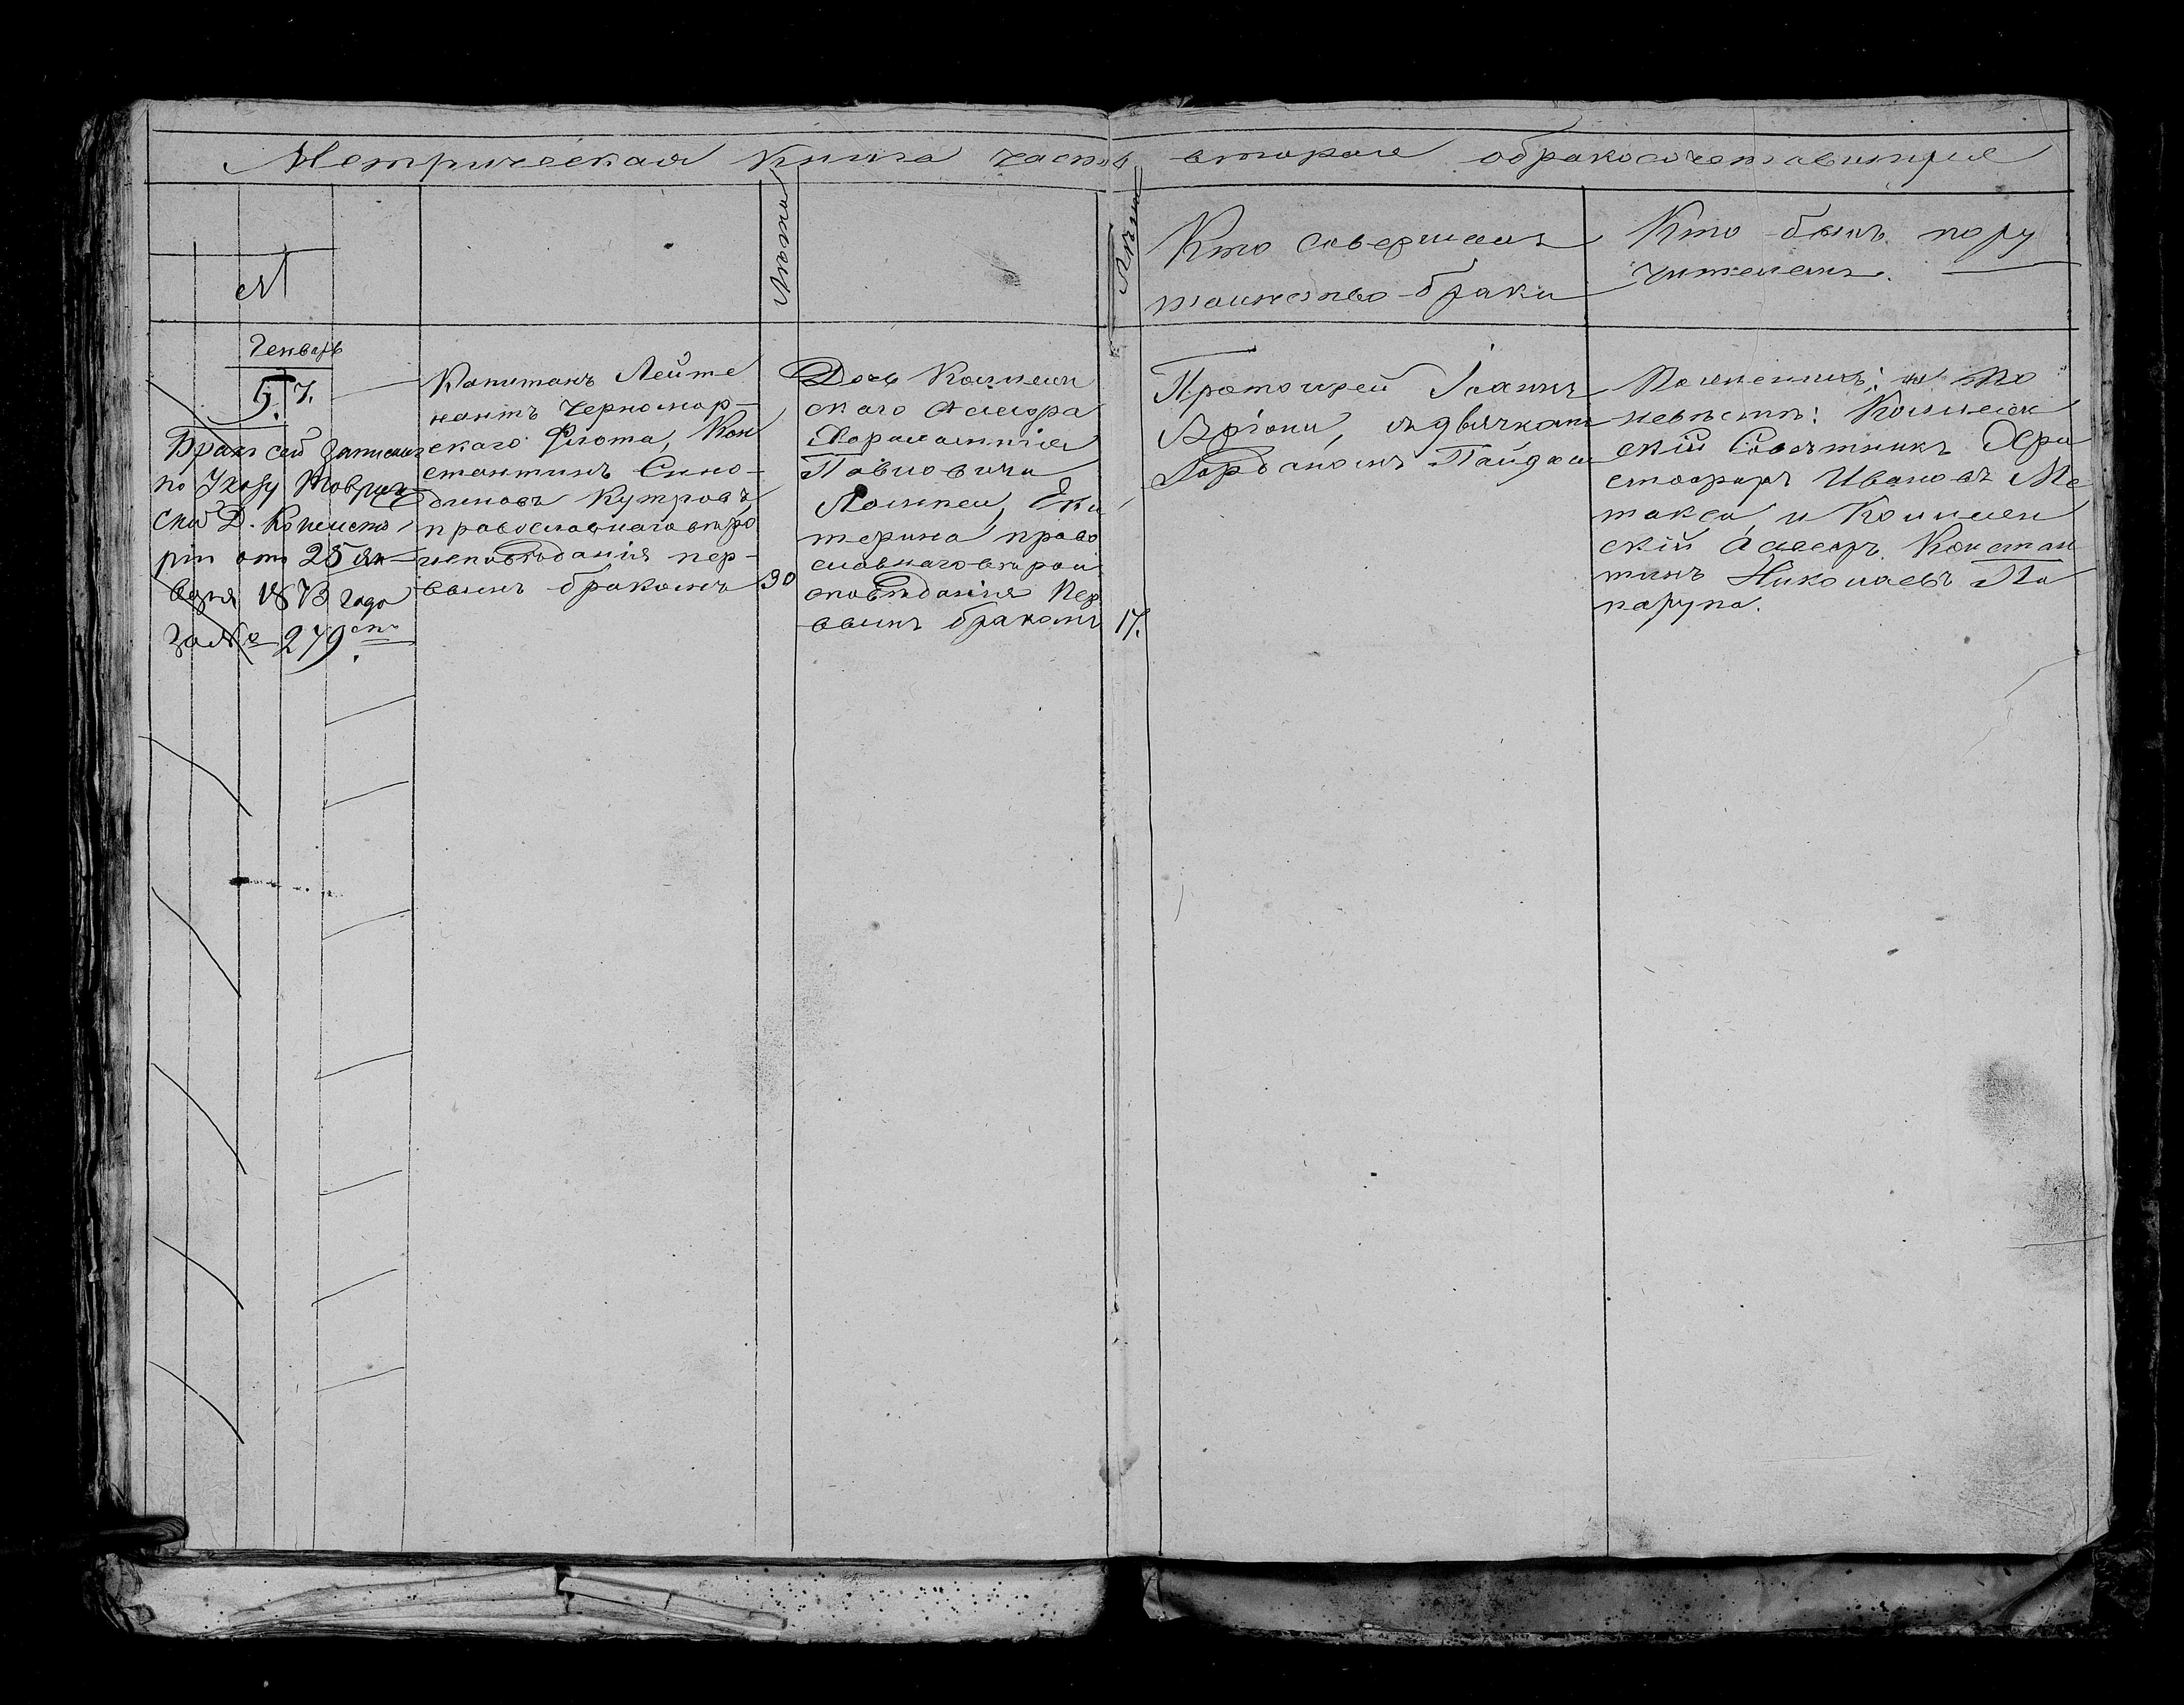 Метрическая книга часть вторая о бракосочетавшихся
№
Лѣта жен
Лѣта
Кто совершалъ
таинство брака
Кто былъ пору
чителемъ.
Генварь
5. 7.
Бракъ сей записанъ
по Указу Тавриче
ской Д. Консисто
ріи отъ 25 Ян
варя 1873 года
за № 279
Капитанъ Лейте
нантъ Черномор-
скаго Флота, Кон
стантинъ Спи
диновъ Кутровъ,
православнаго вѣро
исповѣданія пер-
вымъ бракомъ
30
Дочь Коллеж
скаго Ассесора
Павловича
Екa
терина право
славнаго вѣрои
сповѣданія пер
вымъ бракомъ
17.
Протоіерей Іоаннъ
съ дьячкомъ
по
невѣстѣ: Коллеж
скій Совѣтникъ Хри
стофоръ Ивановъ Ме
такса, и Коллеж
скій Ассесоръ Констан
тинъ Николаевъ Па
парупа.